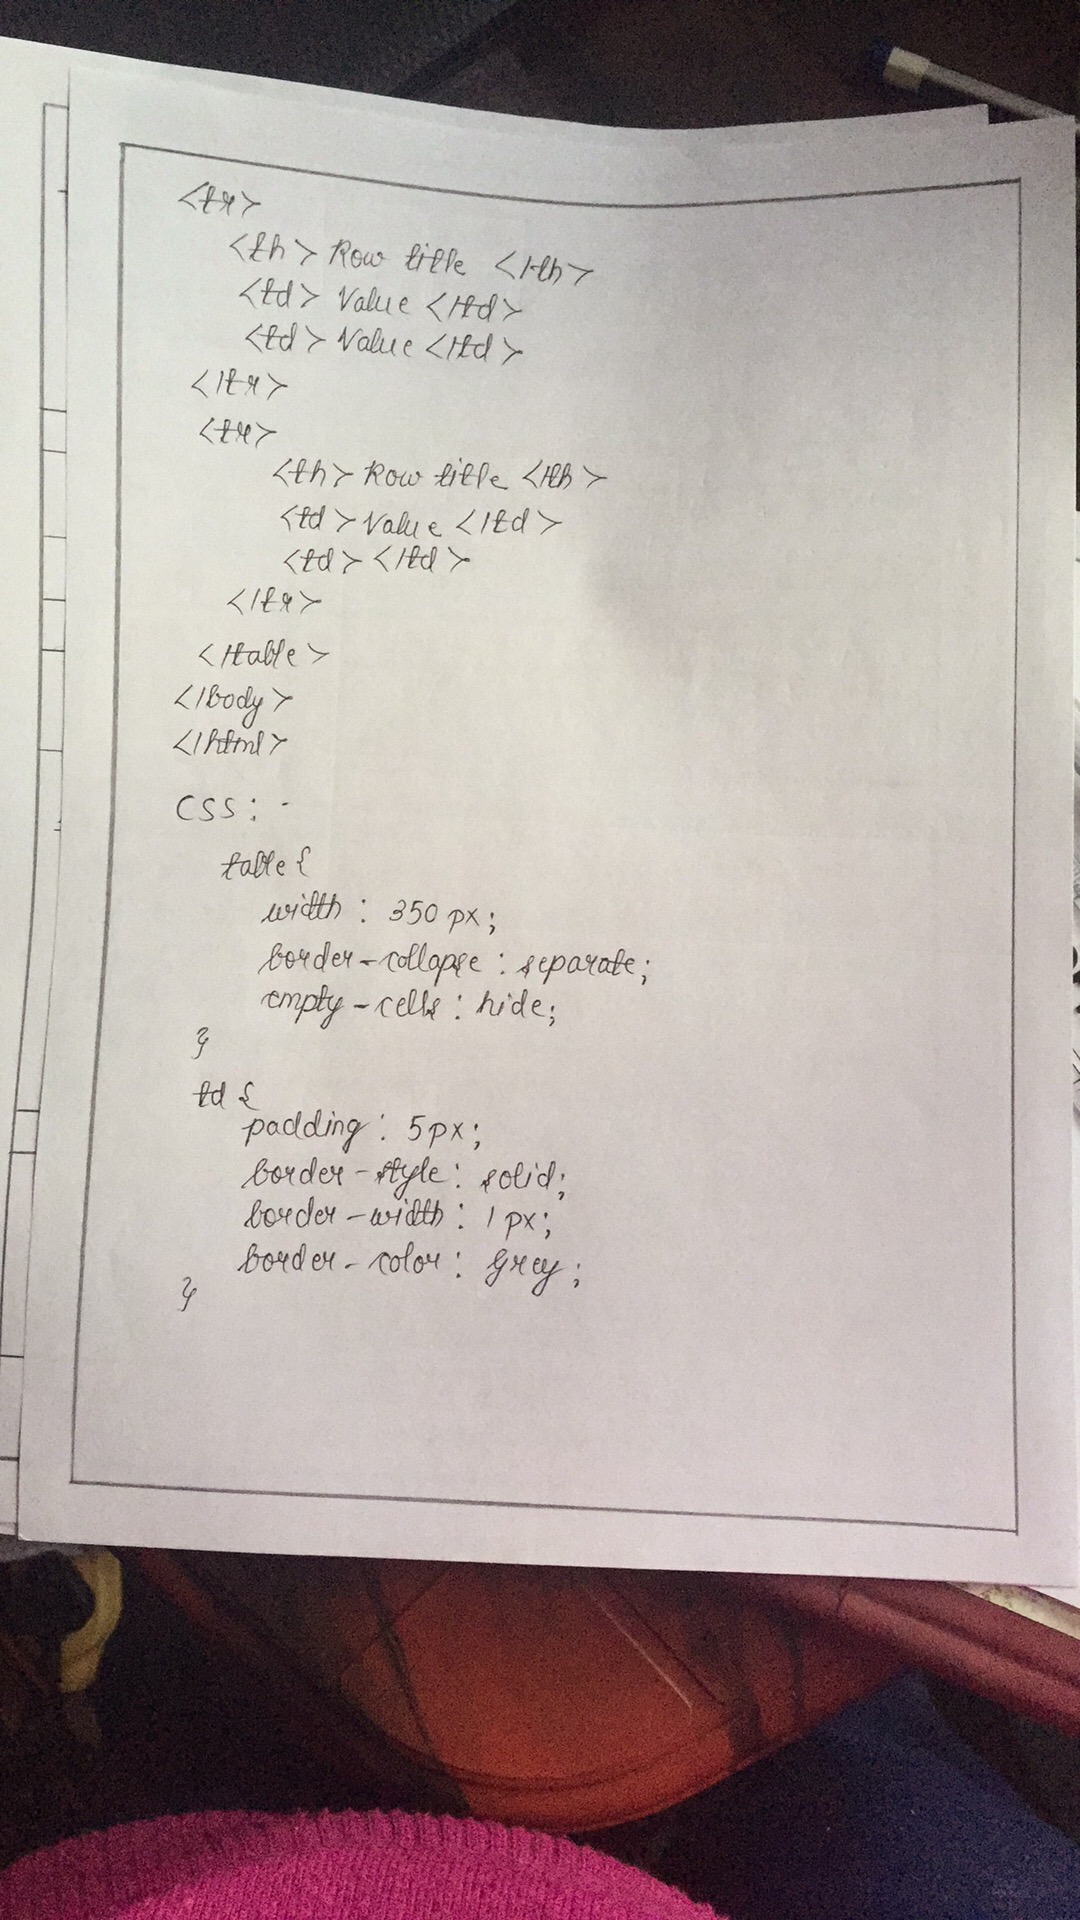 <tr>
<th> Row title </th>
<td> Value </td>
<td> Value </td>
</tr>
<tr>
<th> Row title </th>
<td> Value </td>
<td> </td>
</tr>
</table>
</body>
</html>
CSS: -
table {
width : 350 px;
border-collapse : separate;
empty-cells : hide;
}
td {
padding : 5px;
border-style : solid;
border-width : 1 px;
border-color : Grey;
}